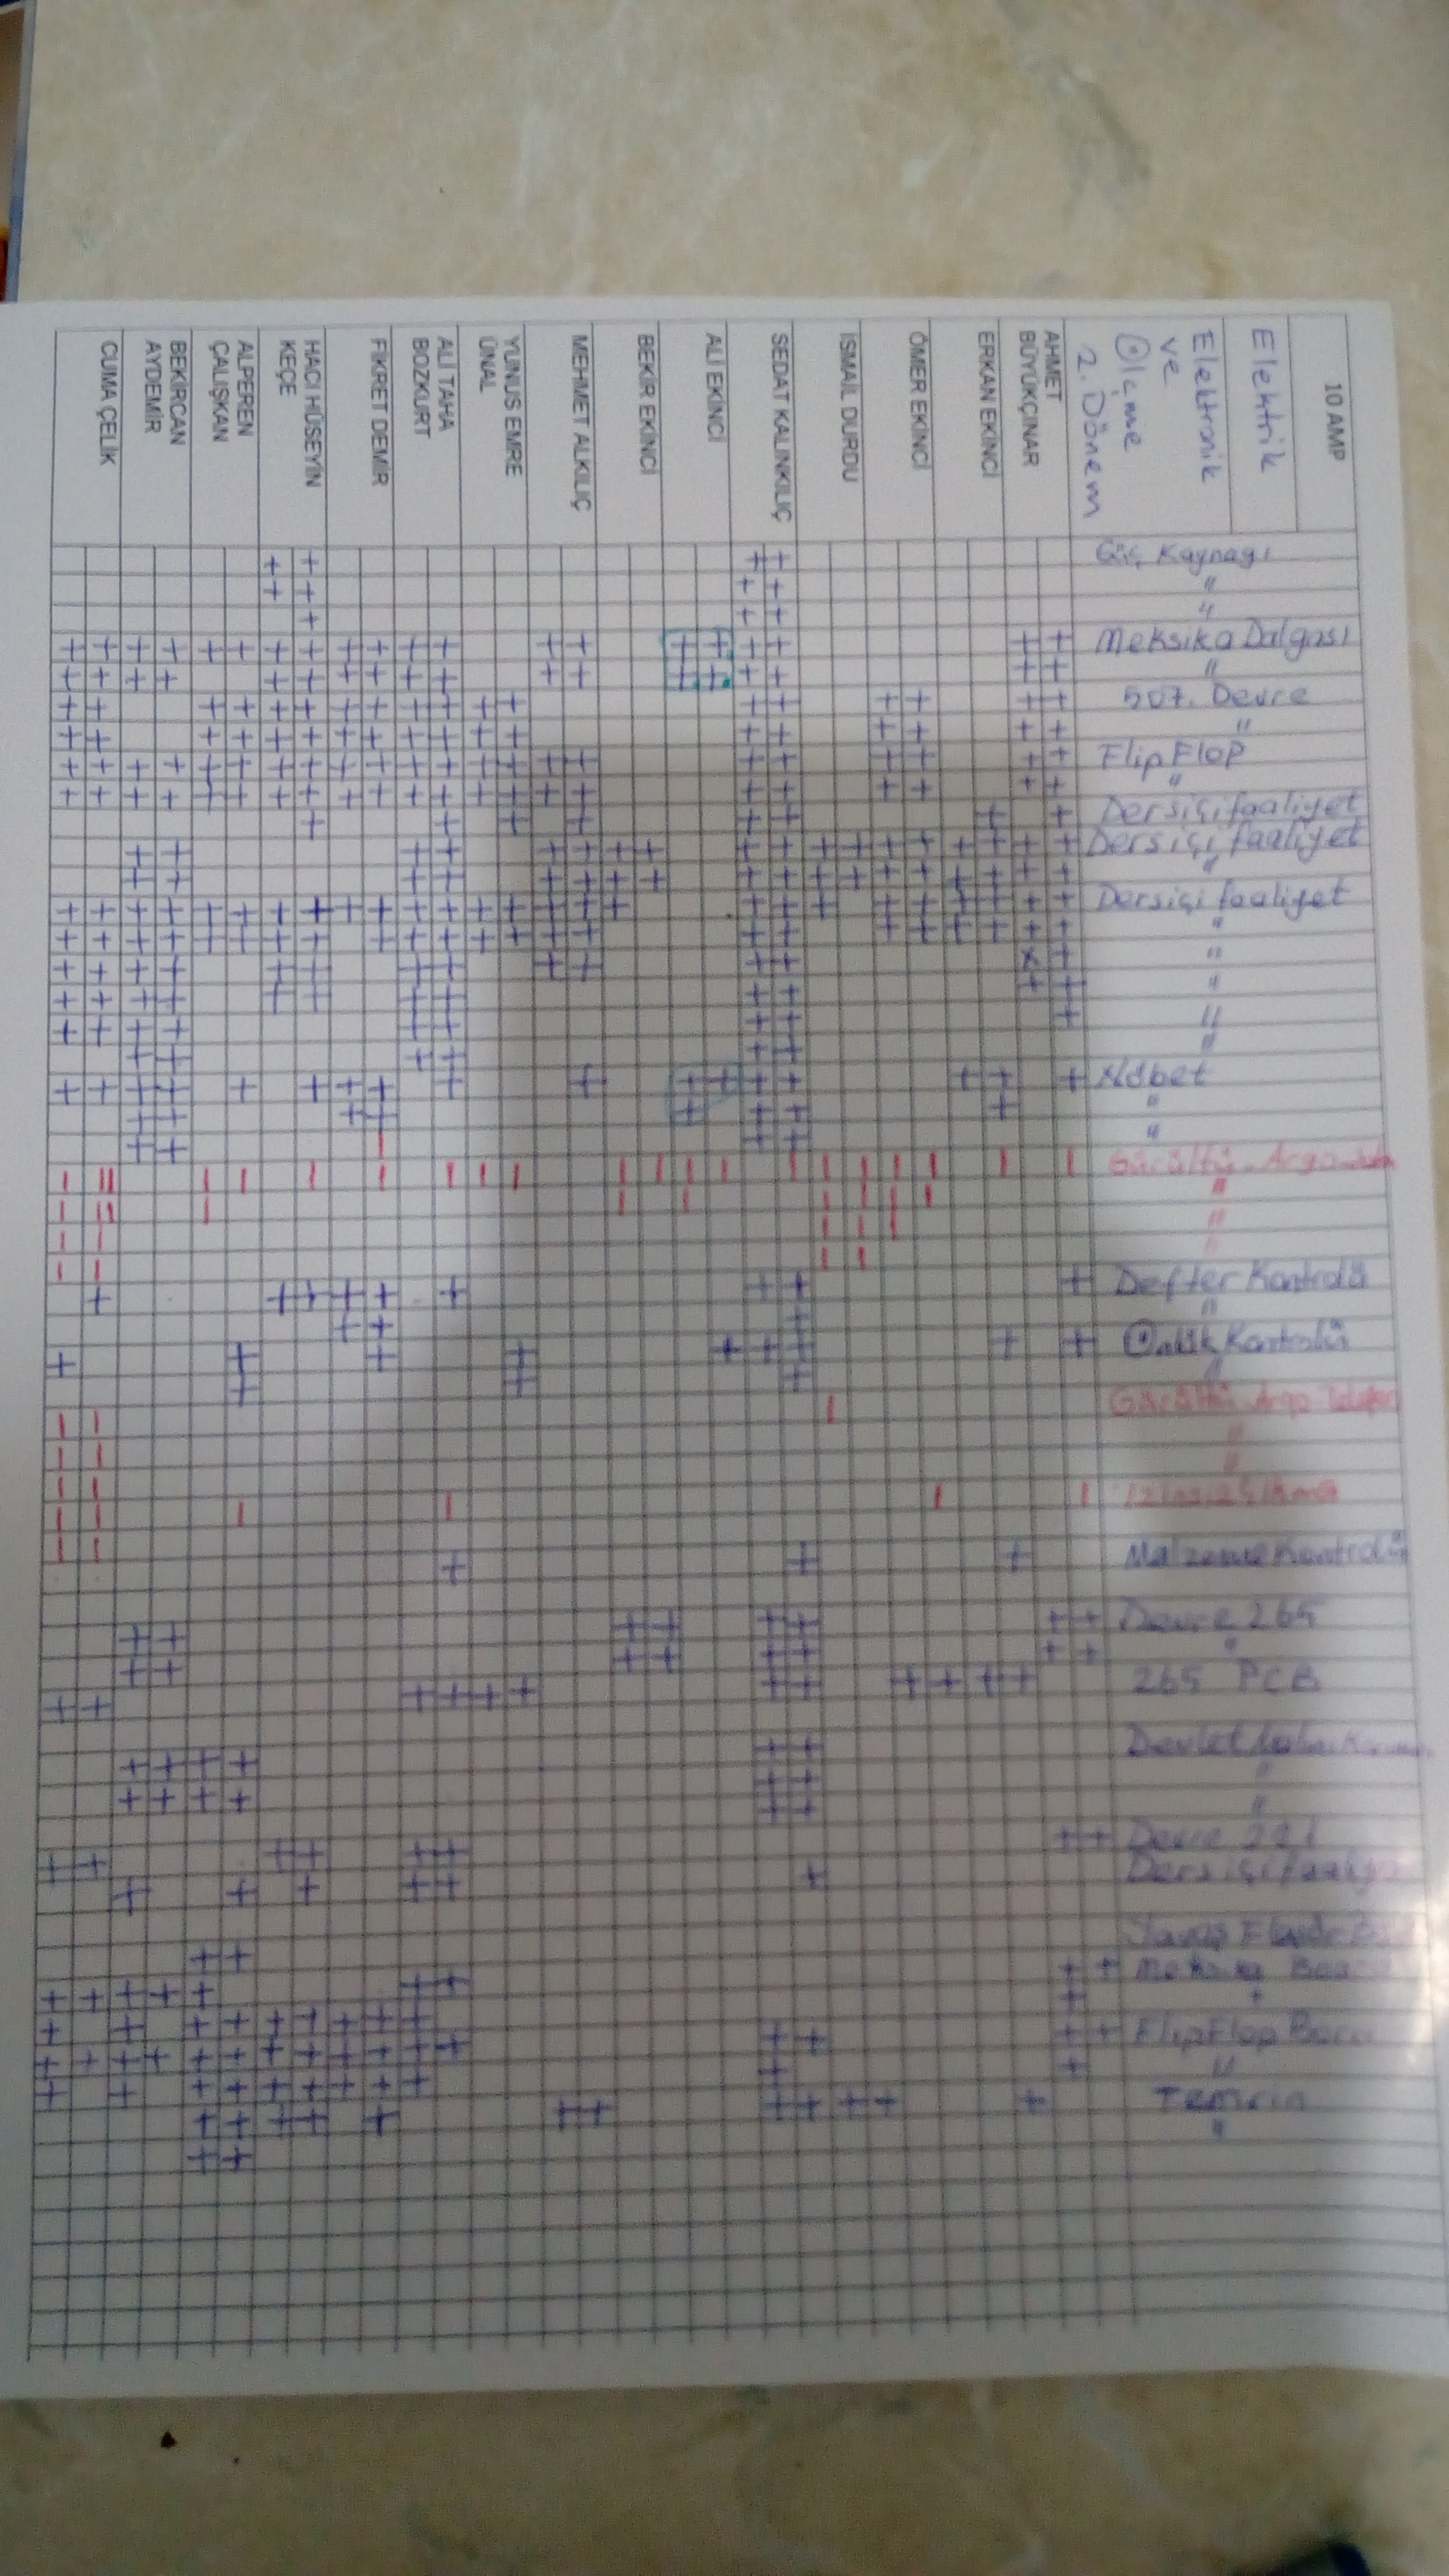 10 AMP
Elektrik
Elektronik
ve
Ölçme
2. Dönem
Güç Kaynağı
"
"
Meksika Dalgası
"
507. Devre
"
Flip Flop
"
Dersiçi faaliyet
Dersiçi faaliyet
"
Dersiçi faaliyet
"
"
"
"
"
Nöbet
"
"
Gürültü - Argo
"
"
"
Defter Kontrolü
"
Önlük Kontrolü
"
Gürültü Argo Telefon
"
"
İzinsiz Çıkma
Malzeme Kontrolü
Devre 265
"
265 PCB
Devlet
"
"
Devre 291
Dersiçi faaliyet
Meksika
"
FlipFlop
"
Temrin
"
AHMET
BÜYÜKÇINAR
ERKAN EKİNCİ
ÖMER EKİNCİ
İSMAİL DURDU
SEDAT KALINKILIÇ
ALİ EKİNCİ
BEKİR EKİNCİ
MEHMET ALKILIÇ
YUNUS EMRE
ÜNAL
ALİ TAHA
BOZKURT
FİKRET DEMİR
HACI HÜSEYİN
KEÇE
ALPEREN
ÇALIŞKAN
BEKİRCAN
AYDEMİR
CUMA ÇELİK